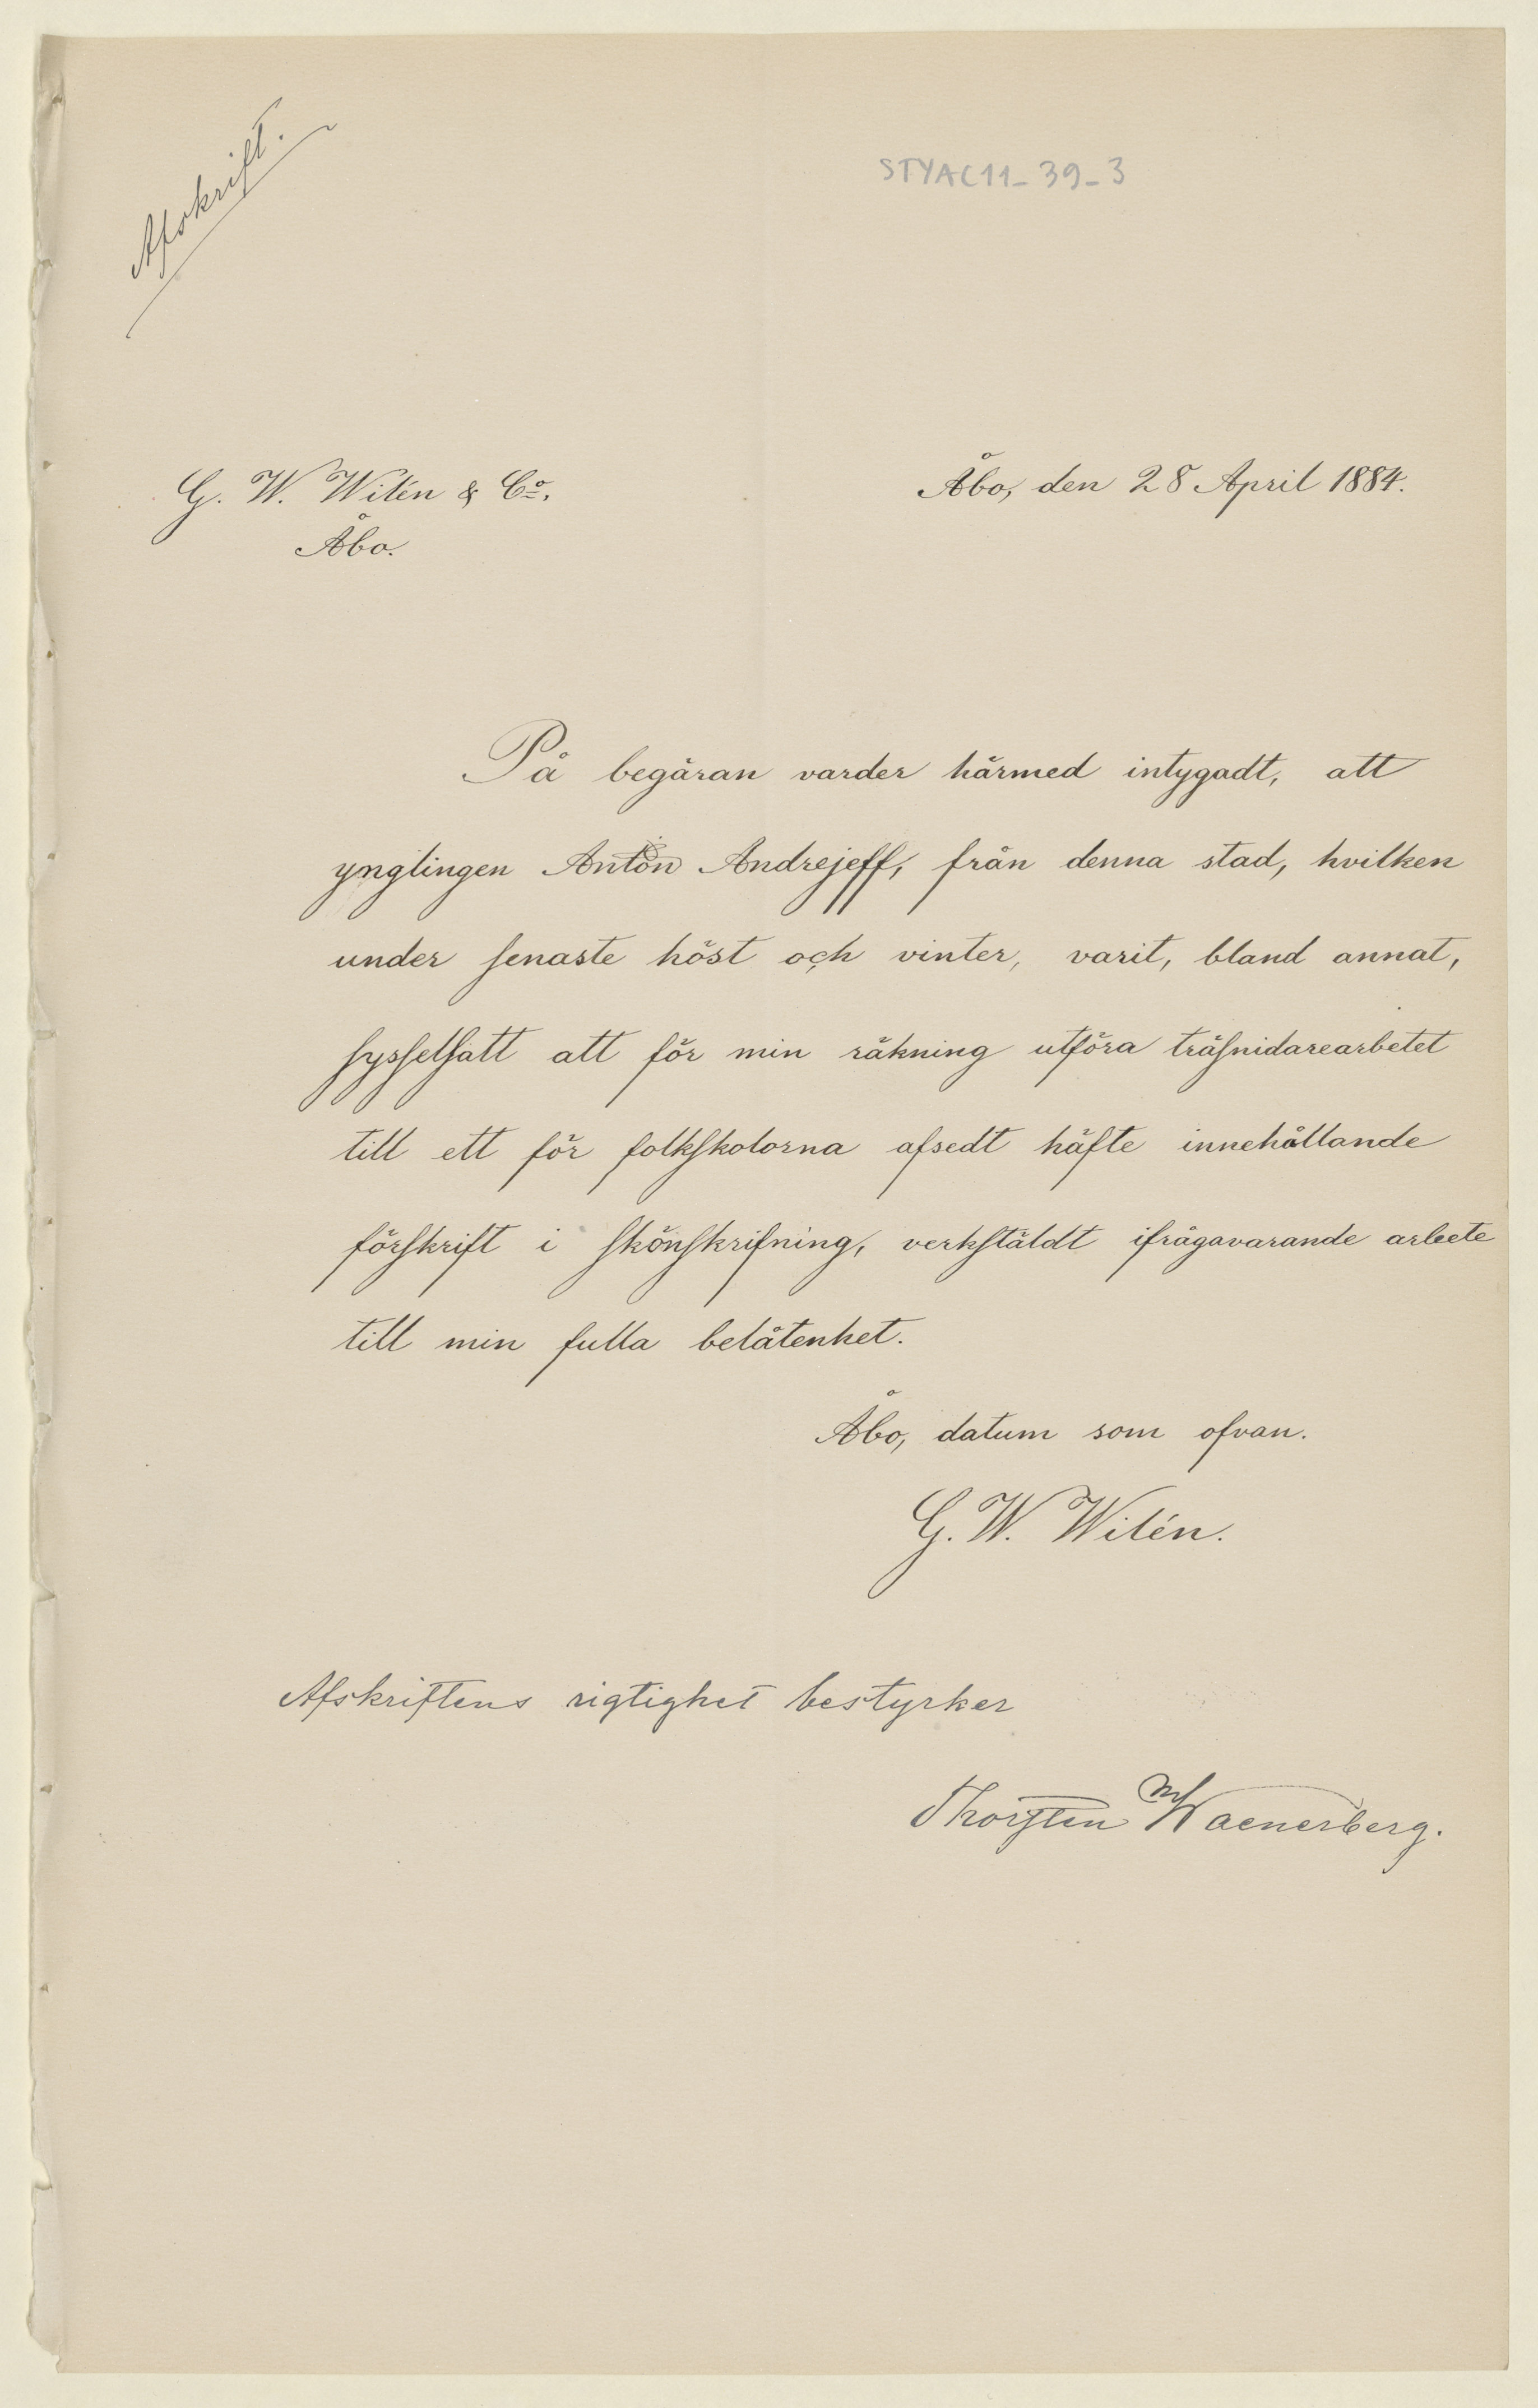 Afskrift.
STYAC11-39-3
G. W. Wilén & Co.
Åbo.
Åbo, den 28 April 1884.
På begäran varder härmed intygadt, att
ynglingen Anton Andrejeff, från denna stad, hvilken
under senaste höst och vinter, varit, bland annat,
sysselsatt att för min räkning utföra träsnidarearbetet
till ett för folkskolorna afsedt häfte innehållande
förskrift i skönskrifning, verkstäldt ifrågavarande arbete
till min fulla belåtenhet.
Åbo, datum som ofvan.
G. W. Wilén.
Afskriftens rigtighet bestyrker
Thorsten Waenerberg.